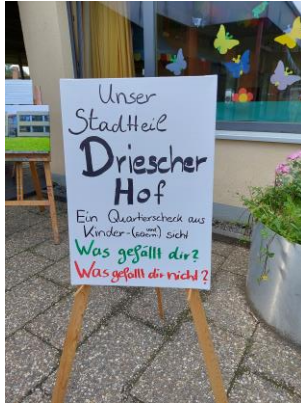 Unser
Stadtteil
Driescher
Hof
Ein Quartierscheck aus
Kinder- (und Eltern) sicht
Was gefällt dir?
Was gefällt dir nicht?